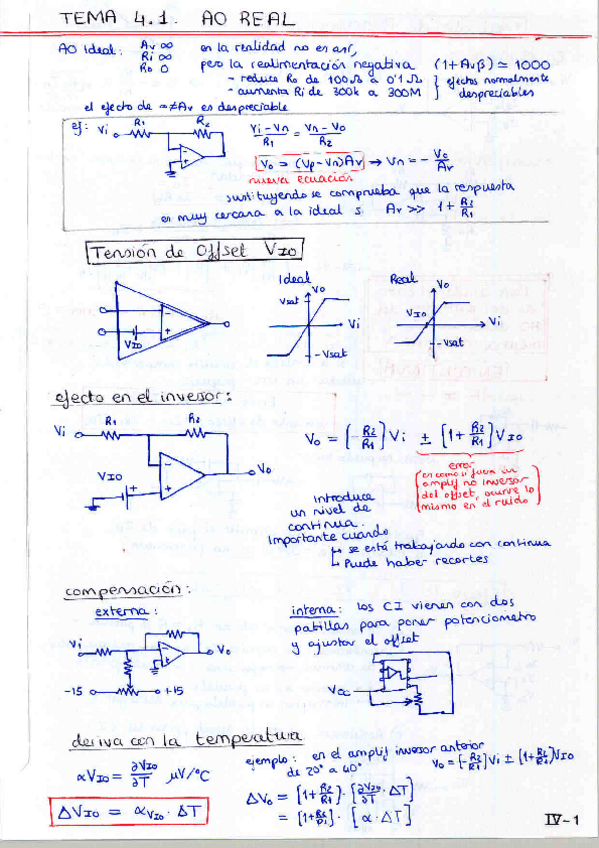 TEMA 4.1. AO REAL
AO Ideal: Av ∞ en la realidad no es así,
Ri ∞ pero la realimentación negativa (1+Avβ) ≃ 1000
Ro 0 - reduce Ro de 100Ω a 0'1Ω } efectos normalmente
- aumenta Ri de 300k a 300M } despreciables
el efecto de ∞≠Av es despreciable
ej: Vi R1 R2 (Vi-Vn)/R1 = (Vn-Vo)/R2
- +
Vo = (Vp-Vn)Av → Vn = - Vo/Av
nueva ecuación
sustituyendo se comprueba que la respuesta
es muy cercana a la ideal si Av >> 1 + R2/R1
Tensión de Offset VIO
Ideal Real
Vo Vo
Vsat
- + VIO Vi VIO Vi
-Vsat -Vsat
efecto en el inversor:
Vi R1 R2
Vo = [-R2/R1]Vi ± [1+R2/R1]VIO
- + Vo
VIO
error
es como si fuera un
amplif no inversor
del offset, ocurre lo
mismo en el ruido
Introduce
un nivel de
continua.
Importante cuando
→ se está trabajando con continua
→ Puede haber recortes
compensación:
externa:
interna: los CI vienen con dos
patillas para poner potenciometro
y ajustar el offset
Vi - + Vo
-15 +15
Vcc
deriva con la temperatura
αVIO = ∂VIO/∂T μV/°C
ΔVIO = αVIO · ΔT
ejemplo: en el amplif inversor anterior
de 20° a 40°
Vo = [-R2/R1]Vi ± [1+R2/R1]VIO
ΔVo = [1+R2/R1] · [∂VIO/∂T · ΔT]
= [1+R2/R1] · [α · ΔT]
IV-1